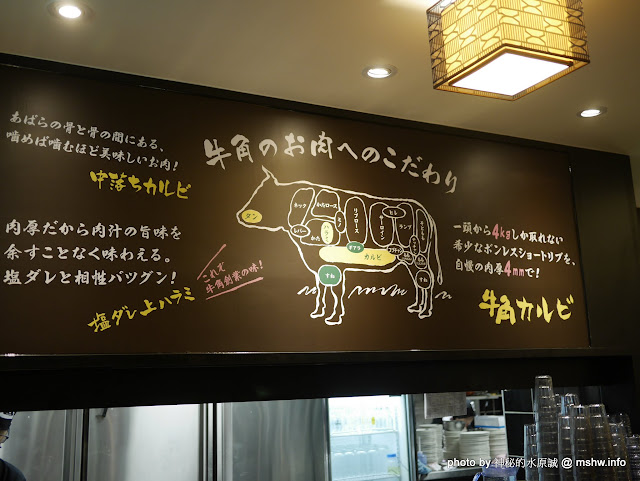 牛角のお肉へのこだわり
あばらの骨と骨の間にある、
噛めば噛むほど美味しいお肉!
中落ちカルビ
肉厚だから肉汁の旨味を
余すことなく味わえる。
塩ダレと相性バツグン!
塩ダレ上ハラミ
これぞ
牛角創業の味!
タン
ネック
かたロース
リブロース
サーロイン
ヒレ
ランプ
レバー
かた
ハラミ
ギアラ
カルビ
すね
すね
一頭から4kgしか取れない
希少なボンレスショートリブを、
自慢の肉厚4mmで!
牛角カルビ
photo by 神秘的水原誠 @ mshw.info